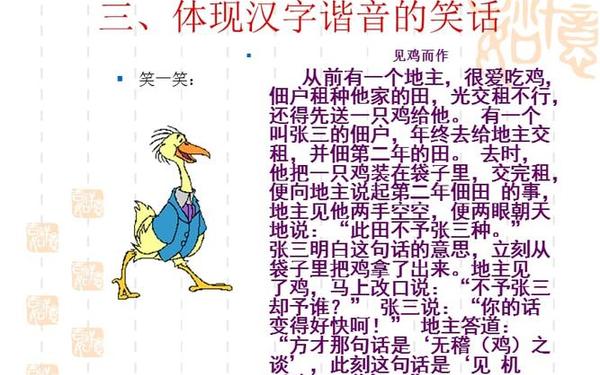 三、体现汉字谐音的笑话
见鸡而作
笑一笑：
从前有一个地主，很爱吃鸡，
佃户租种他家的田，光交租不行，
还得先送一只鸡给他。 有一个
叫张三的佃户，年终去给地主交
租，并佃第二年的田。 去时，
他把一只鸡装在袋子里，交完租，
便向地主说起第二年佃田 的事，
地主见他两手空空，便两眼朝天
地说：“此田不予张三种。”
张三明白这句话的意思，立刻从
袋子里把鸡拿了出来。地主见
了鸡，马上改口说：“不予张三
却予谁？” 张三说：“你的话
变得好快呵！” 地主答道：
“方才那句话是‘无稽（鸡）之
谈’，此刻这句话是‘见 机